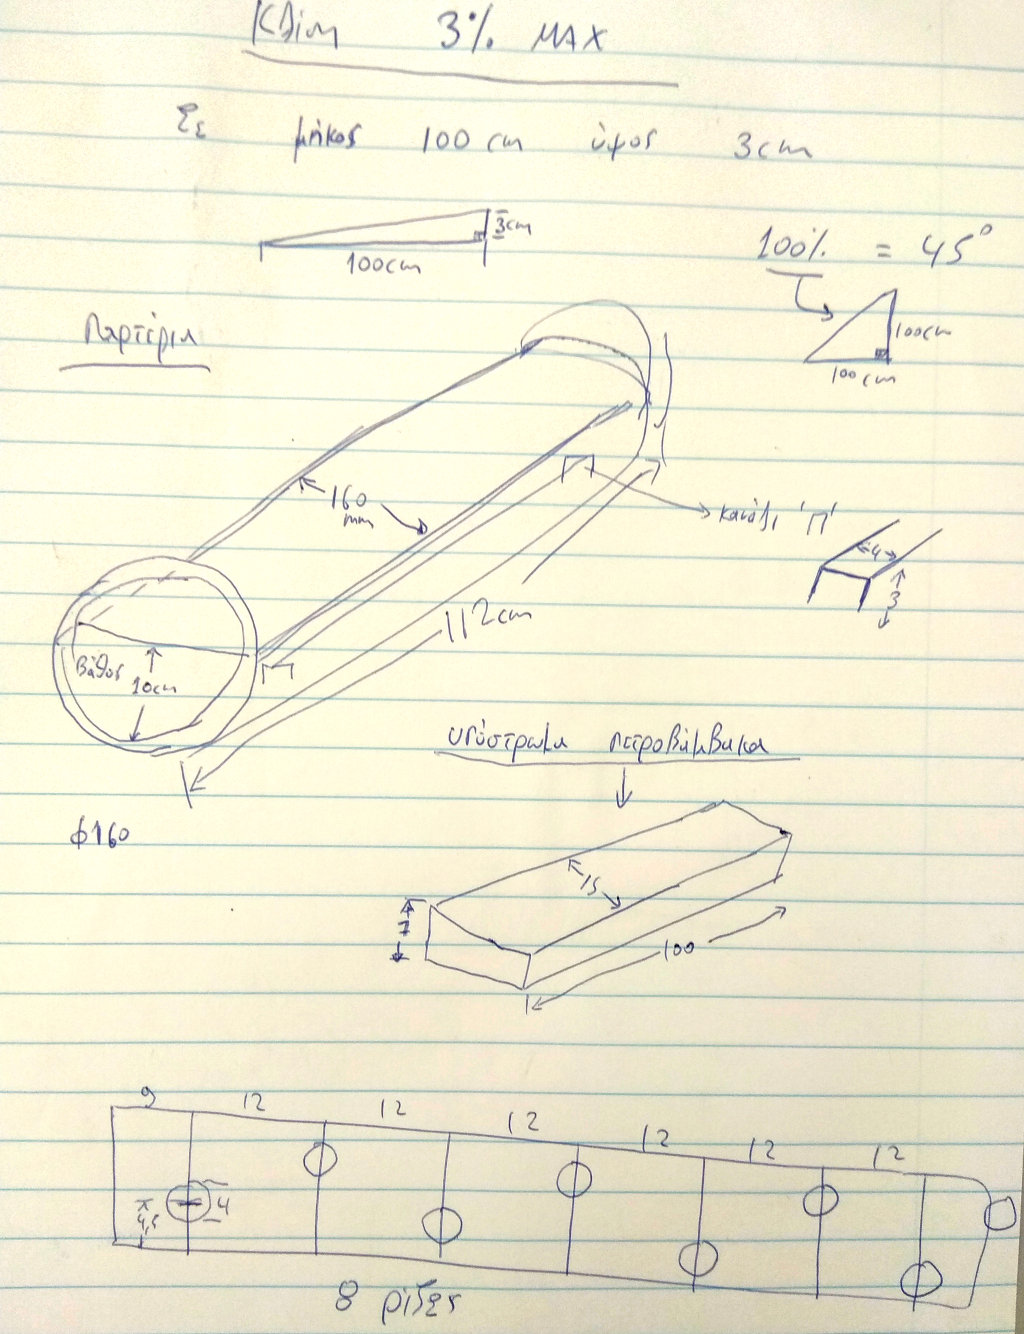 Κλίση 3% MAX
Σε μήκος 100 cm ύψος 3cm
3cm
100cm
100% = 45°
100cm
100 cm
Παρτέρια
160
mm
κανάλι 'Π'
4
3
112cm
βάθος
10cm
υπόστρωμα πετροβάμβακα
φ160
15
7
100
9 12 12 12 12 12 12
4
4,5
8 ρίζες